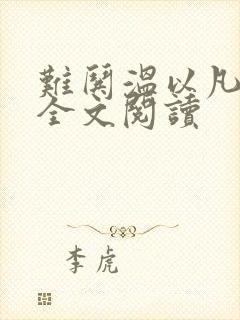 難鬨溫以凡
全文閱讀
李虎